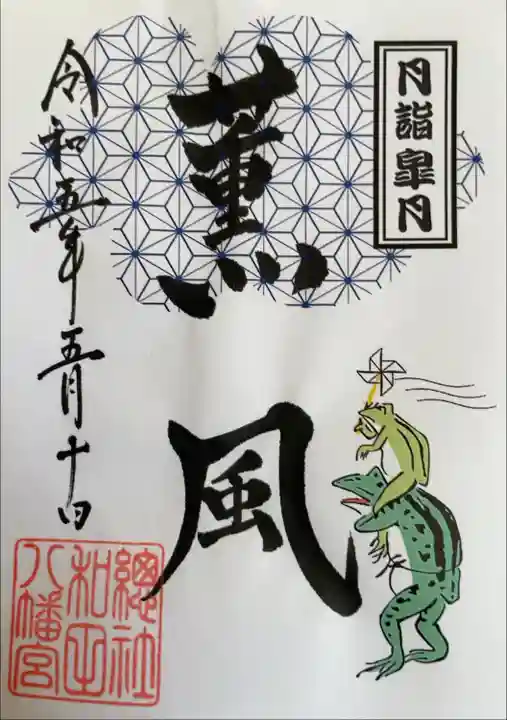 月詣皐月
薫風
令和五年五月十四日
總社
和田
八幡宮